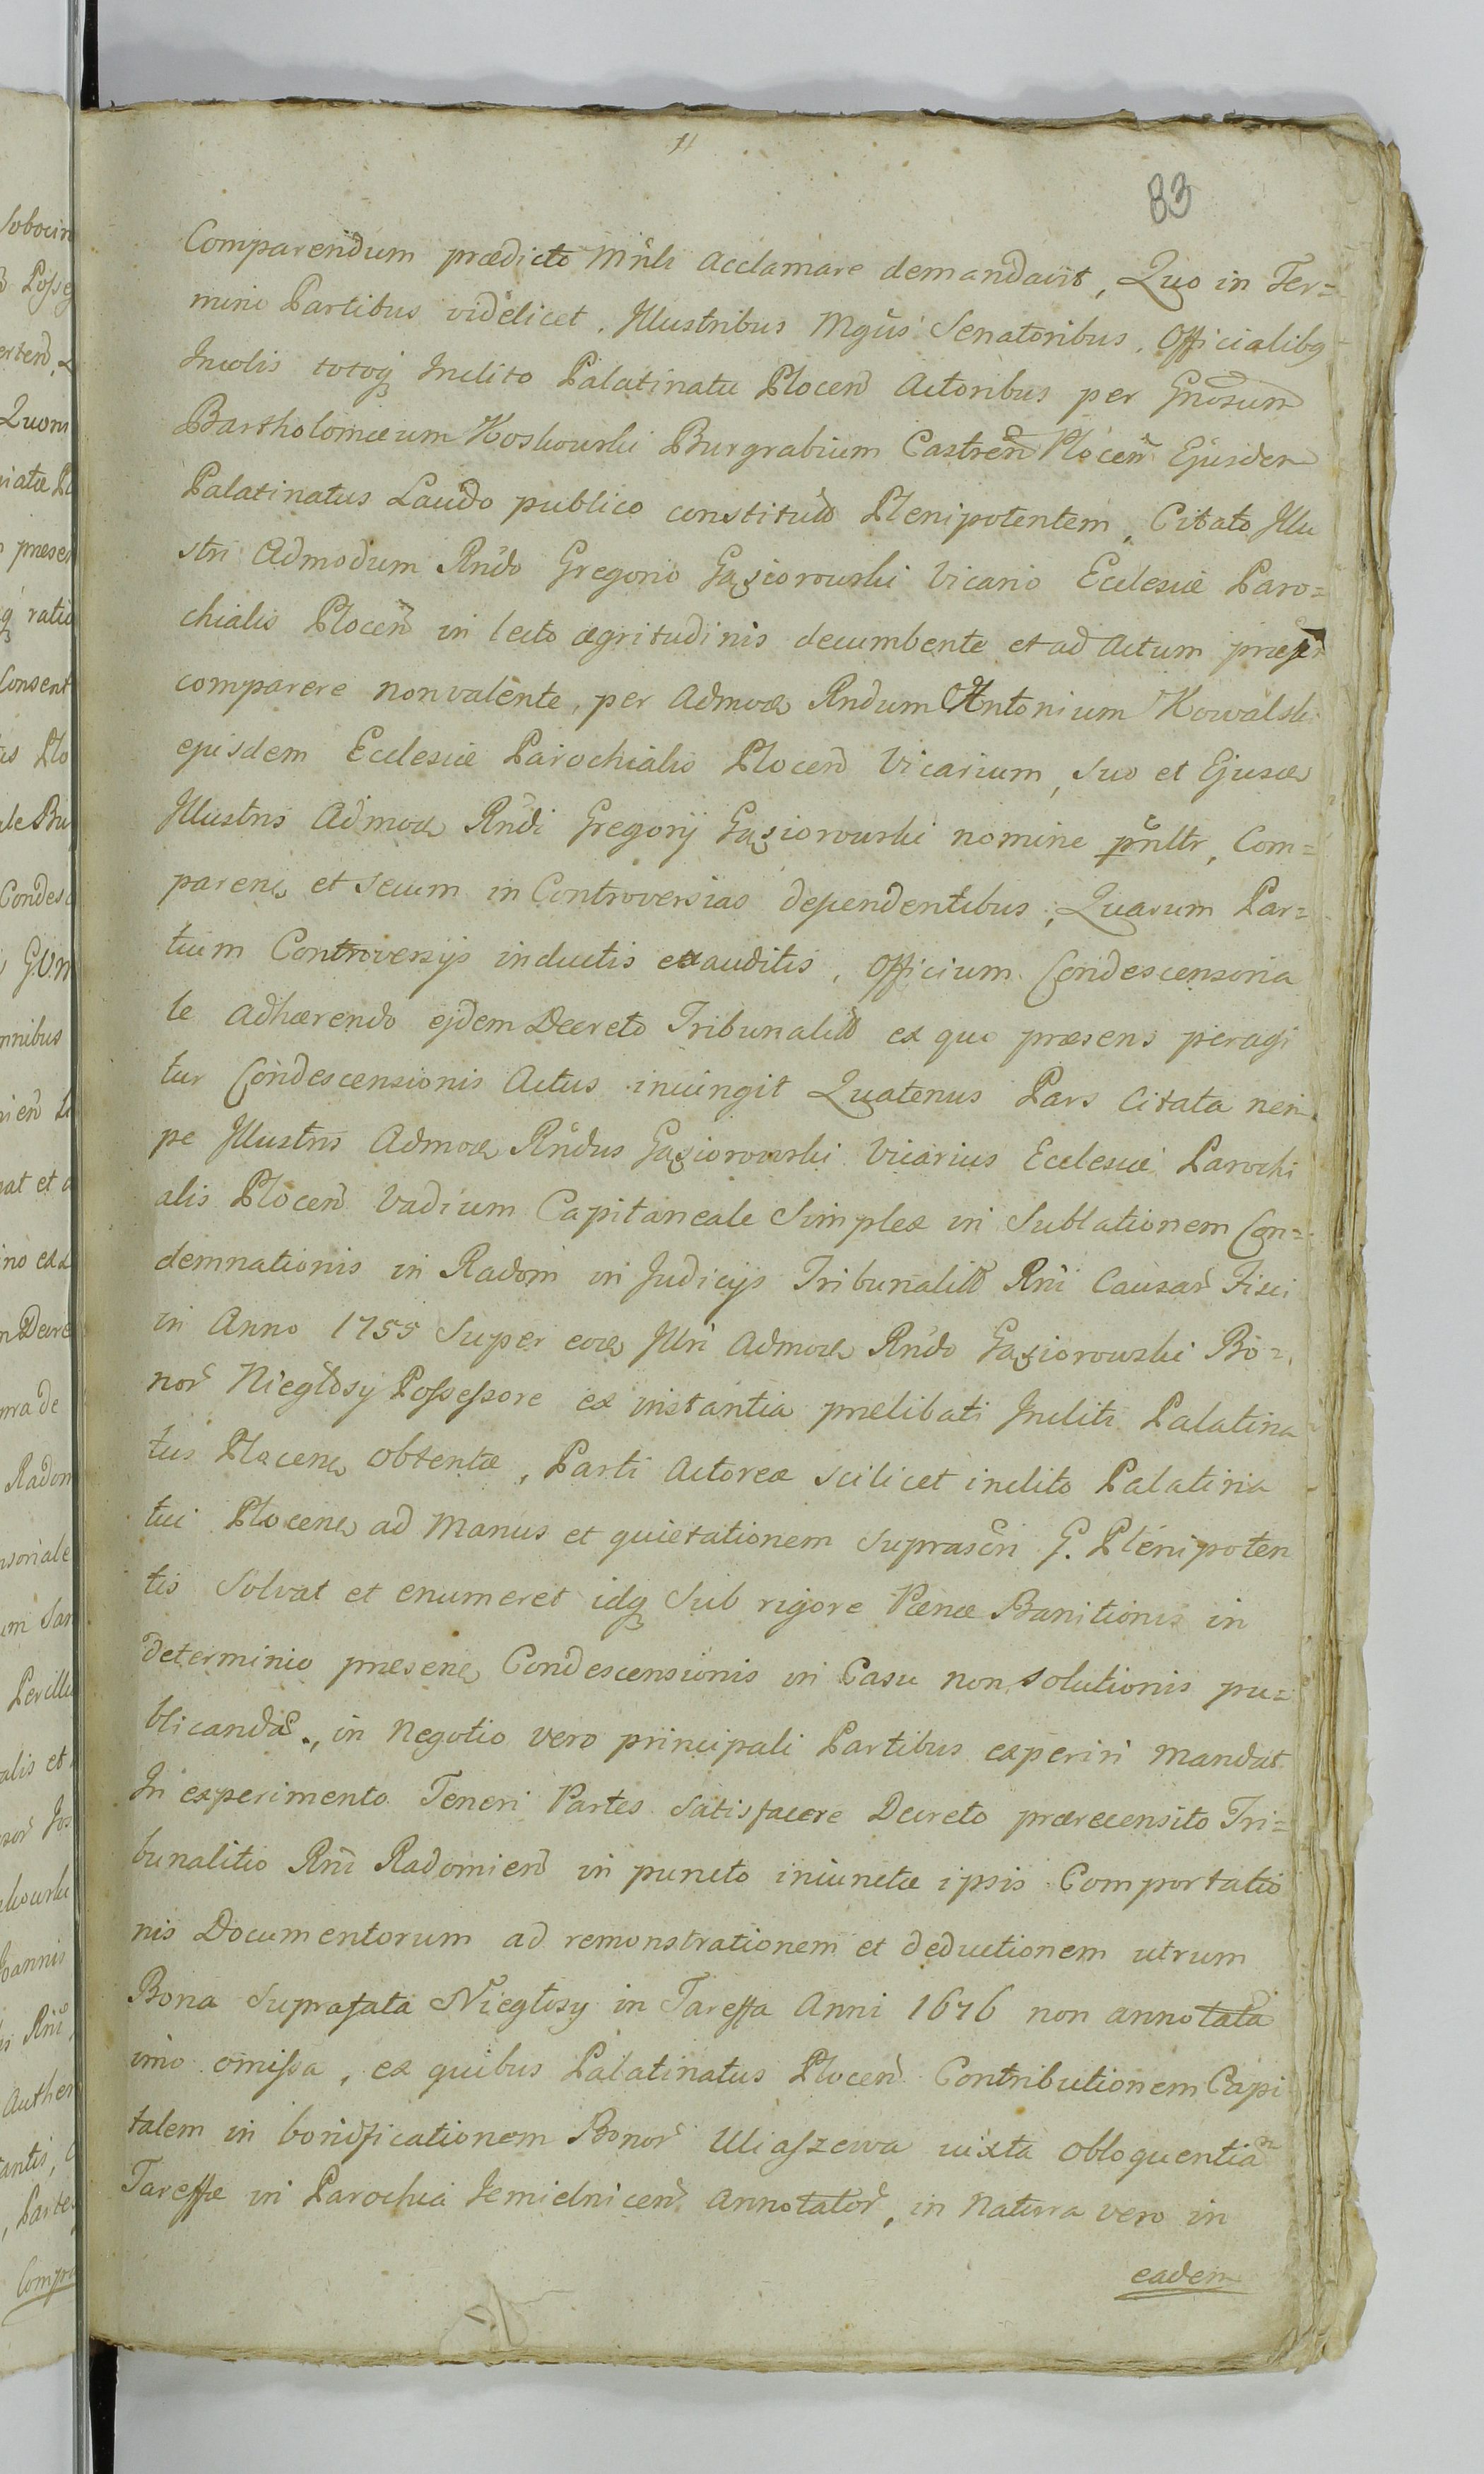 83
Comparendum prædicto Mnli acclamare demandavit, Quo in Ter=
mino Partibus videlicet. Illustribus Mgcis Senatoribus, Officialibq
Incolis totoq Inclito Palatinatu Plocen Actoribus per Gnosum
Bartholomæum Koskowski Burgrabium Castren Plocen Ejusdem
Palatinatus Laudo publico constitum Plenipotentem, Citato Illu
stri Admodum Rndo Gregorio Gąsiorowski Vicario Ecclesiæ Paro=
chialis Plocen in lecto ægritudinis decumbente et ad Actum præsen
comparere non valente, per Admod Rndum Antonium Kowalski
ejusdem Ecclesiæ Parochialis Plocen Vicarium, suo et Ejusd
Illustris Admod Rndi Gregorij Gąsiorowski nomine pnltr, Com=
paren, et secum in Controversias dependentibus, Quarum Par=
tium Controversijs inductis exauditis, Officium Condescensoria
le adhærendo ejdem Decreto Tribunalit ex quo præsens peragi
tur Condescensionis Actus iniungit Quatenus Pars Citata nem
pe Illustris Admod Rndus Gąsiorowski Vicarius Ecclesiæ Parochi
alis Plocen Vadium Capitaneale Simplex in Sublationem Con=
demnationis in Radom in Judicijs Tribunalit Rni Causar Fisci
in Anno 1755 Super eod Illri Admod Rndo Gąsiorowski Bo=
nor Niegłosy Possessore ex instantia prælibati Incliti Palatina
tus Plocen, obtentæ, Parti Actoreæ scilicet inclito Palatina
tui Plocen, ad Manus et quietationem Suprascri G. Plenipoten
tis Solvat et enumeret idq Sub rigore Pænæ Banitionis in
determinio præsen, Condescensionis in Casu non solutionis pu=
blicandæ, in Negotio vero principali Partibus experiri mandat
In experimento Teneri Partes Satisfacere Decreto prærecensito Tri=
bunalitio Rni Radomien in puncto iniunctæ ipsis Comportatio
nis Documentorum ad remonstrationem et deductionem utrum
Bona Suprafata Niegłosy in Tareffa Anni 1676 non annotata
imo omissa, ex quibus Palatinatus Plocen Contributionem Capi
talem in bonificationem Bonor Uliaszewa iuxta obloquentiam
Tareffæ in Parochia Jemielnicen Annotator, in Natura vero in
eadem